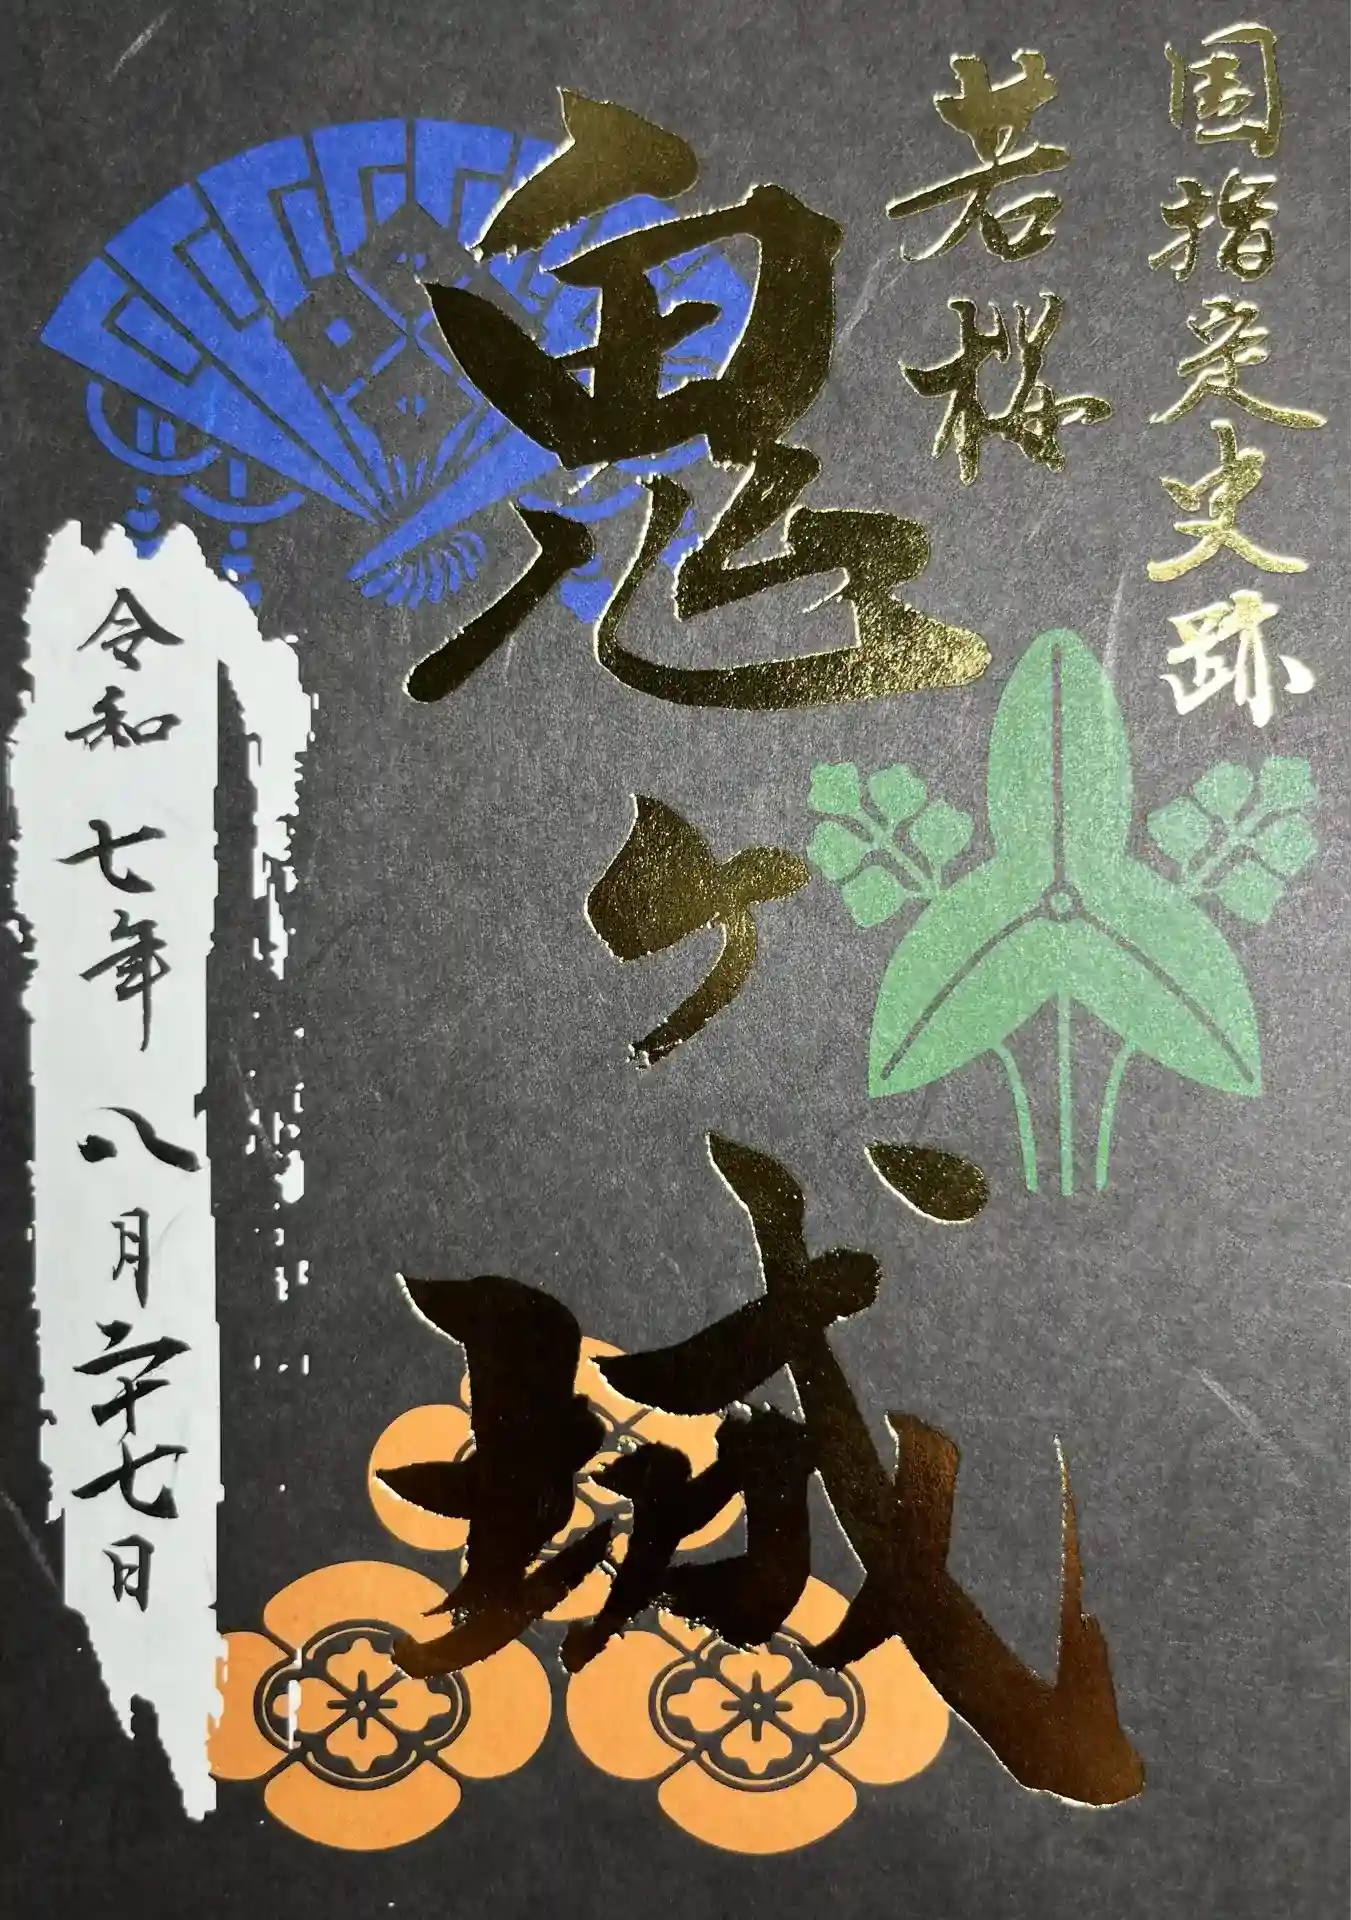 国指定史跡
若桜
鬼ヶ城
令和七年八月二十七日